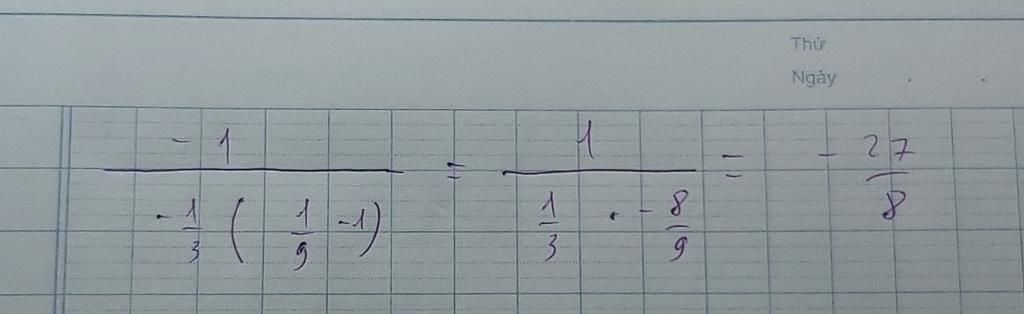 Thứ
Ngày . .
-1 / (-1/3 (1/9 -1)) = 1 / (1/3 . -8/9) = - 27/8